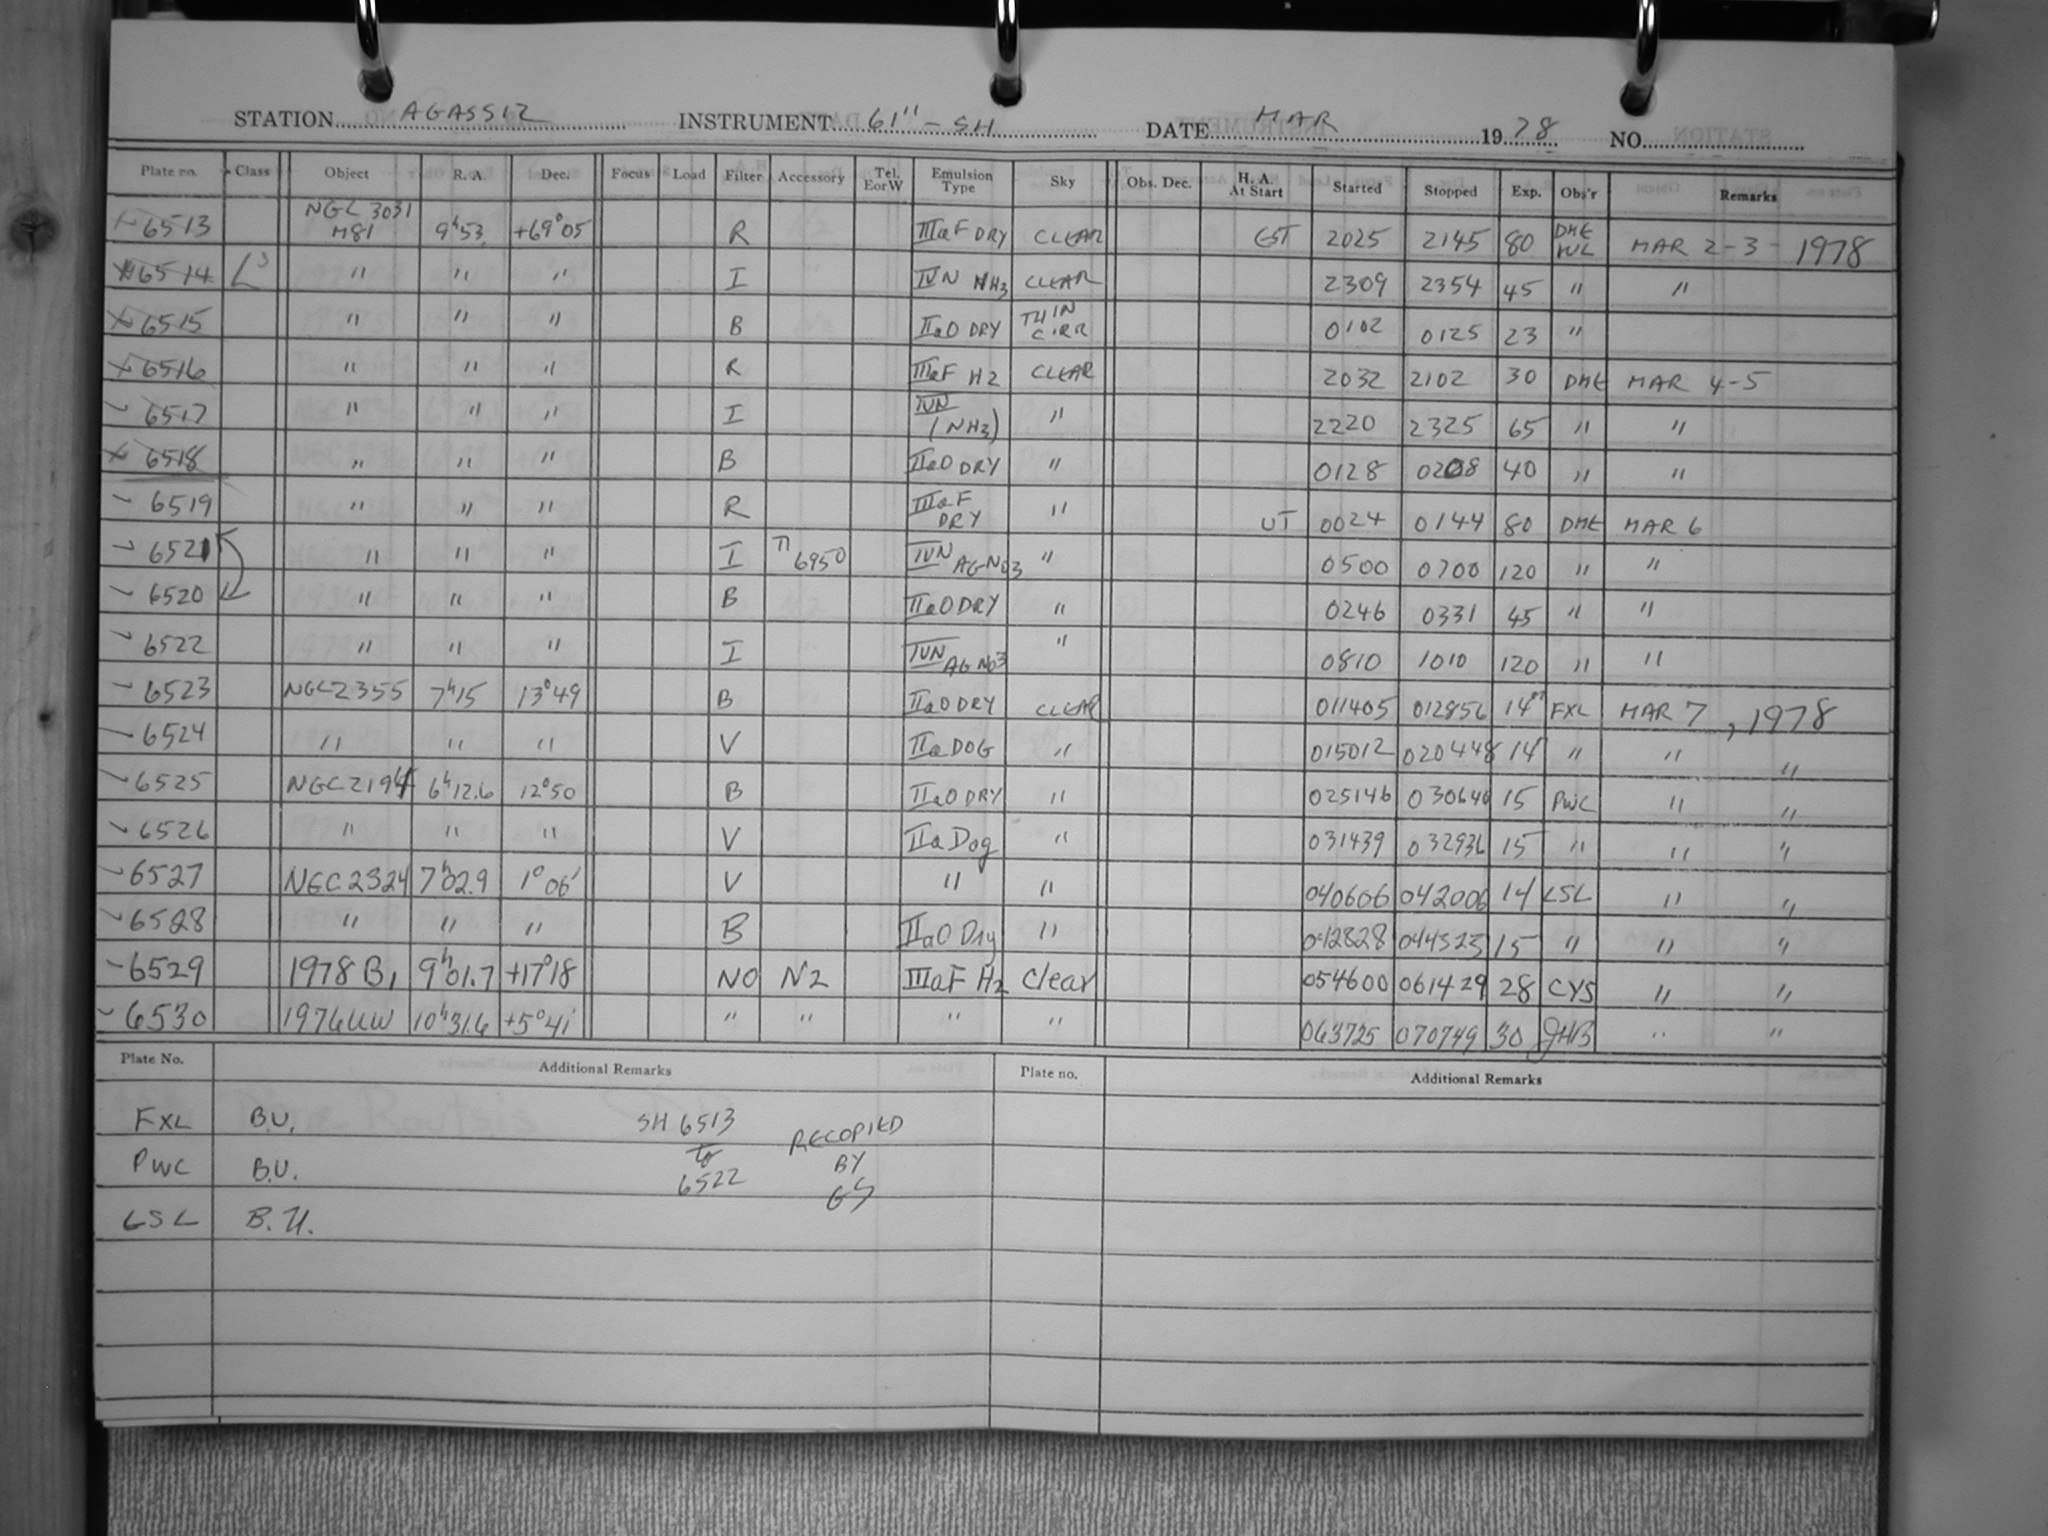 STATION AGASSIZ INSTRUMENT 61" - SH DATE MAR 1978 NO.
Plate no. Class Object R. A. Dec. Focus Load Filter Accessory Tel. E or W Emulsion Type Sky Obs. Dec. H. A. At Start Started Stopped Exp. Obs'r Remarks
6513 NGC 3031 M81 9h53 +69°05 R IIIaF DRY CLEAR EST 2025 2145 80 DME MAR 2-3- 1978
6514 L3 " " " I IVN NH3 CLEAR 2309 2354 45 " "
6515 " " " B IIaO DRY THIN CIRR 0102 0125 23 "
6516 " " " R IIIaF H2 CLEAR 2032 2102 30 DME MAR 4-5
6517 " " " I IVN (NH3) " 2220 2325 65 " "
6518 " " " B IIaO DRY " 0128 0208 40 " "
6519 " " " R IIIaF DRY " UT 0024 0144 80 DME MAR 6
6521 " " " I 6950 IVN AGNO3 " 0500 0700 120 " "
6520 " " " B IIaO DRY " 0246 0331 45 " "
6522 " " " I IVN AGNO3 " 0810 1010 120 " "
6523 NGC2355 7h15 13°49 B IIaO DRY CLEAR 011405 012856 14 FXL MAR 7, 1978
6524 " " " V IIaDOG " 015012 020448 14 " " "
6525 NGC2194 6h12.6 12°50 B IIaO DRY " 025146 030646 15 PWC " "
6526 " " " V IIa Dog " 031439 032936 15 " " "
6527 NGC2324 7h02.9 1°06' V " " 040606 042006 14 LSL " "
6528 " " " B IIaO Dry " 042828 044323 15 " " "
6529 1978 B1 9h01.7 +17°18 NO N2 IIIaF H2 Clear 054600 061429 28 CYS " "
6530 1976UW 10h31.6 +5°41' " " " " 063725 070749 30 JHB " "
Plate No. Additional Remarks Plate no. Additional Remarks
FXL B.U. SH 6513 RECOPIED
to BY
PWC B.U. 6522 GS
LSL B.U.